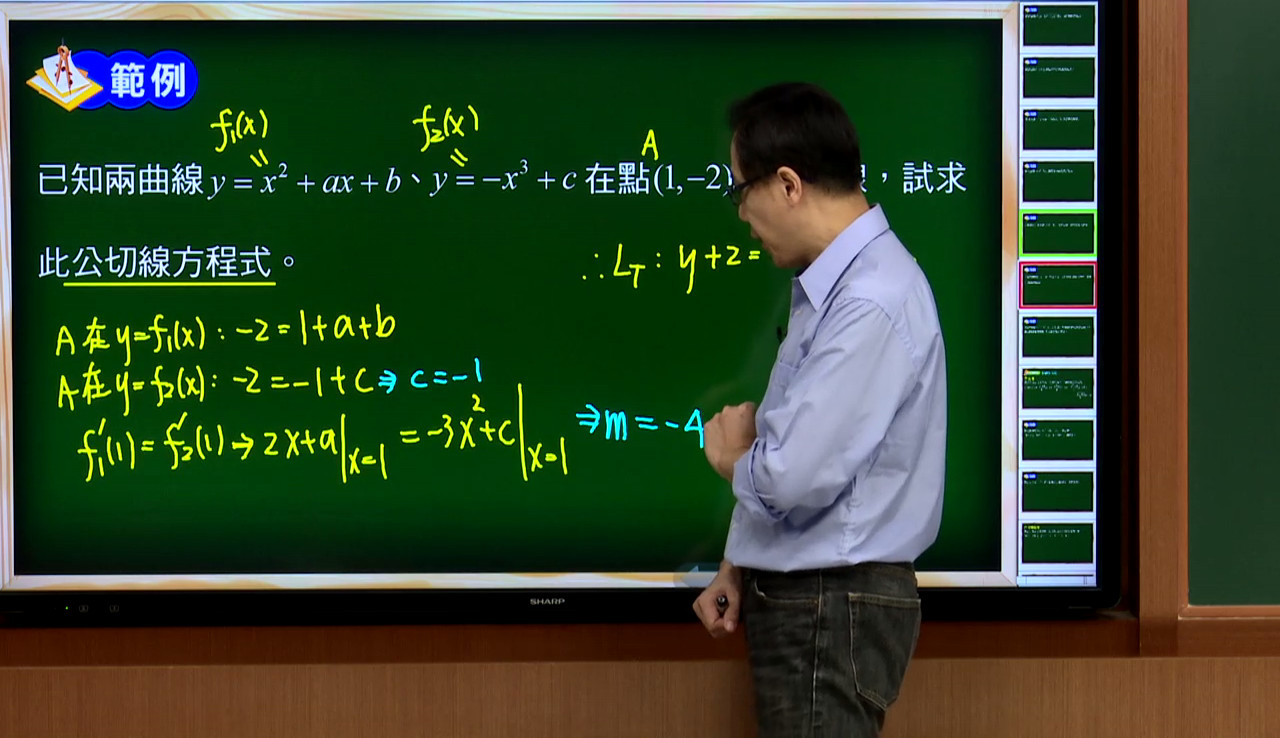 範例
f₁(x) f₂(x) A
已知兩曲線 y = x² + ax + b、y = −x³ + c 在點(1,−2) ，試求
此公切線方程式。
∴L_T : y+2=
A在y=f₁(x) : -2=1+a+b
A在y=f₂(x) : -2=-1+c ⇒ c=-1
f₁'(1)=f₂'(1)→2x+a|x=1 =-3x²+c|x=1 ⇒m=-4
SHARP